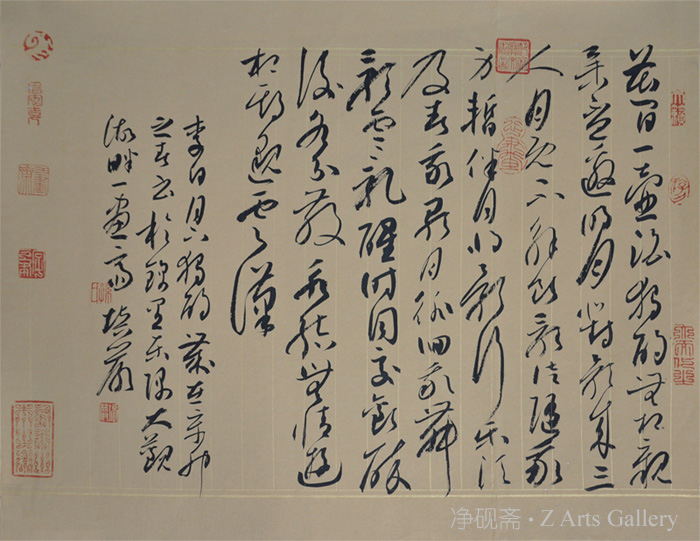 花間一壺酒獨酌無相親
舉杯邀明月對影成三
人月既不解飲影徒隨我
身暫伴月將影行樂須
及春我歌月徘徊我舞
影零亂醒時同交歡醉
後各分散永結無情遊
相期邈雲漢
李白月下獨酌歲在辛卯
之春書於珠里東隅大觀
畔一
净砚斋 · Z Arts Gallery